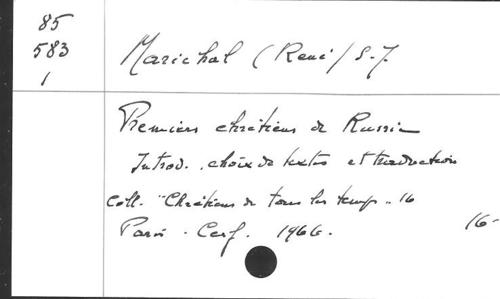 85
583
1
Marichal (René) S.J.
Premiers chrétiens de Russie
Introd., choix de textes et traduction
Coll. "Chrétiens de tous les temps" 16
Paris - Cerf. 1966.
16-